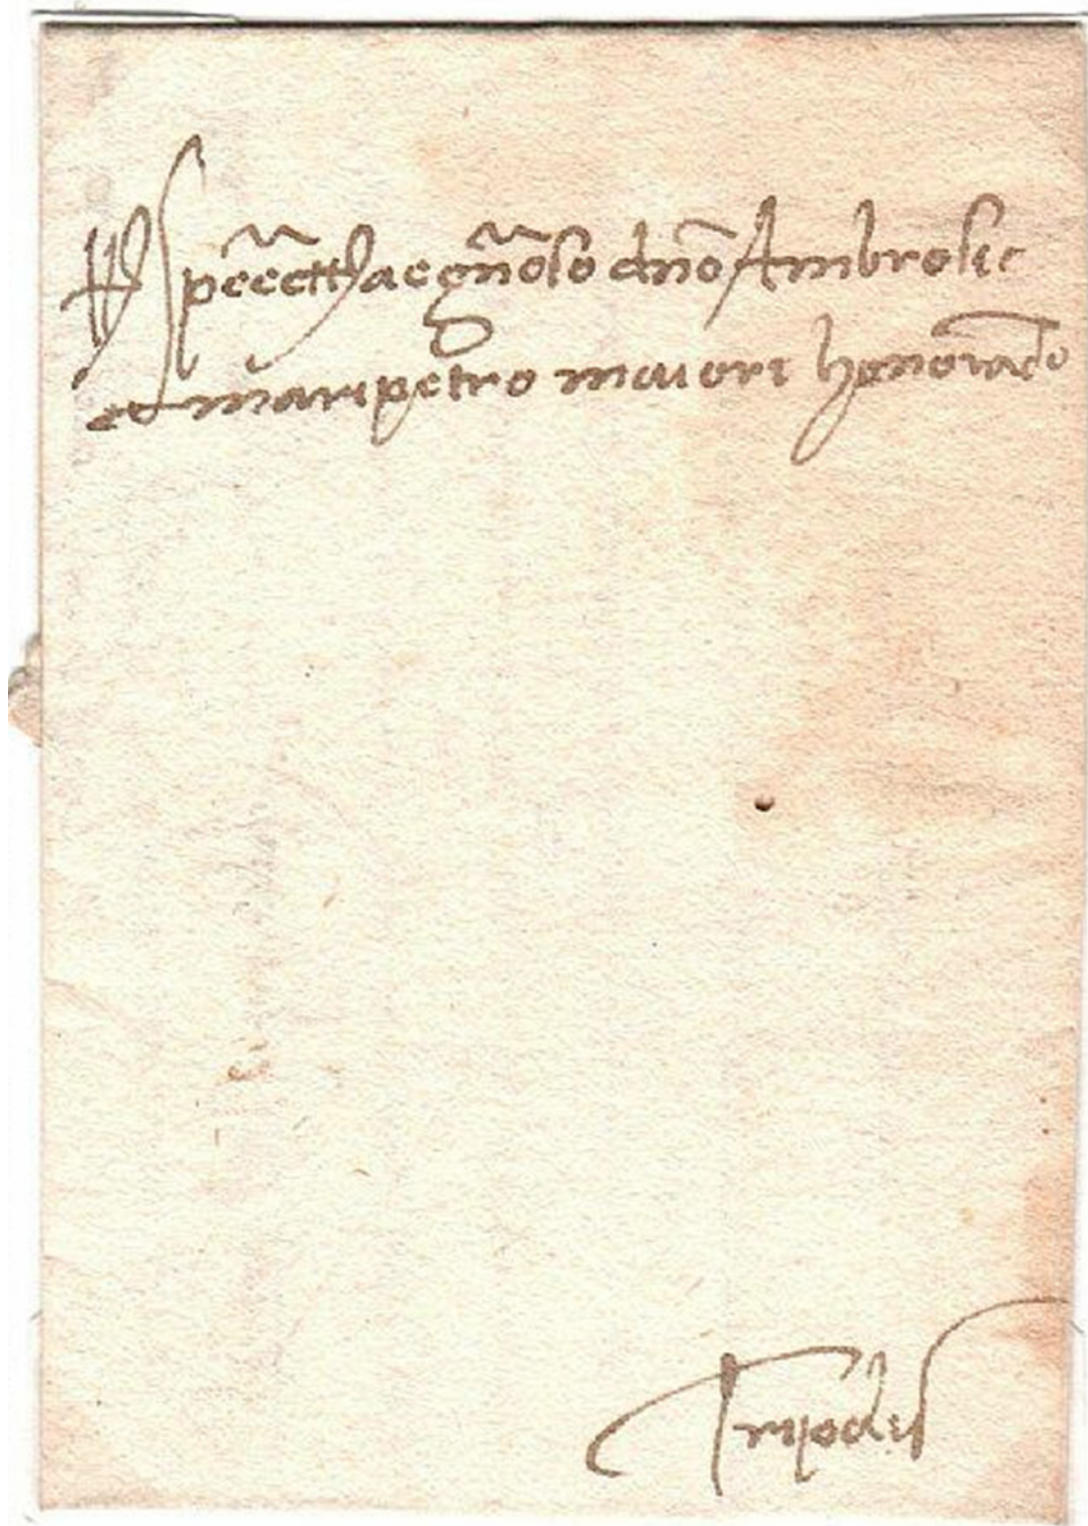 Spectli ac gnoso dno Ambrosio
maripetro maiori honorado
Tripolis